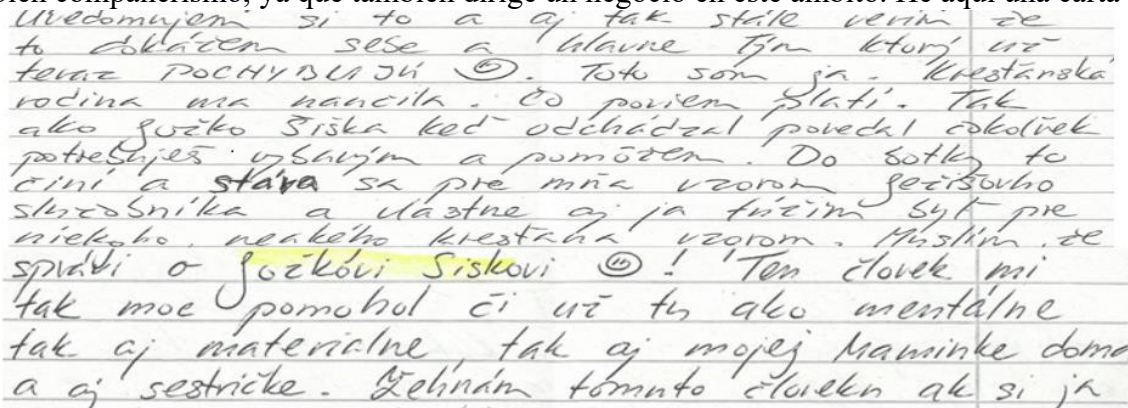 bién compañerismo, ya que también dirige un negocio en este ámbito. He aquí una carta
Uvedomujem si to a aj tak stále verím že
to dokážem sebe a hlavne tým ktorý už
teraz POCHYBUJÚ ☺. Toto som ja. Kresťanská
rodina ma naučila. Čo poviem platí. Tak
ako Jožko Šiška keď odchádzal povedal čokoľvek
potrebuješ vybavím a pomôžem. Do bodky to
činí a stáva sa pre mňa vzorom Ježišovho
služobníka a vlastne aj ja túžim byť pre
niekoho, neakého kresťana vzorom. Myslím, že
správi o Jožkóvi Šiškovi ☺! Ten človek mi
tak moc pomohol či už tu ako mentálne
tak aj materialne, tak aj mojej Maminke doma
a aj sestričke. Žehnám tomuto človeku ak si ja